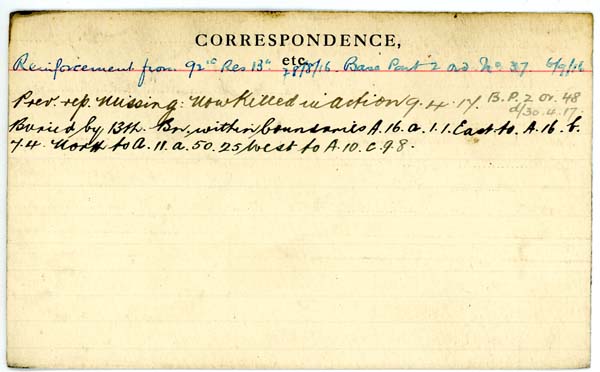 CORRESPONDENCE,
etc.
Reinforcement from 92nd Res Bn 28/8/16 Base Part 2 ord. No. 317 6/9/16
Prev. rep. Missing: Now Killed in action 9.4.17 B.P. 2 Or. 48
d/30.4.17.
Buried by 13th. Bn. within boundaries A.16.a.1.1. East to A.16.b.
7.4. North to A.11.a.50.25 West to A.10.c.9.8.